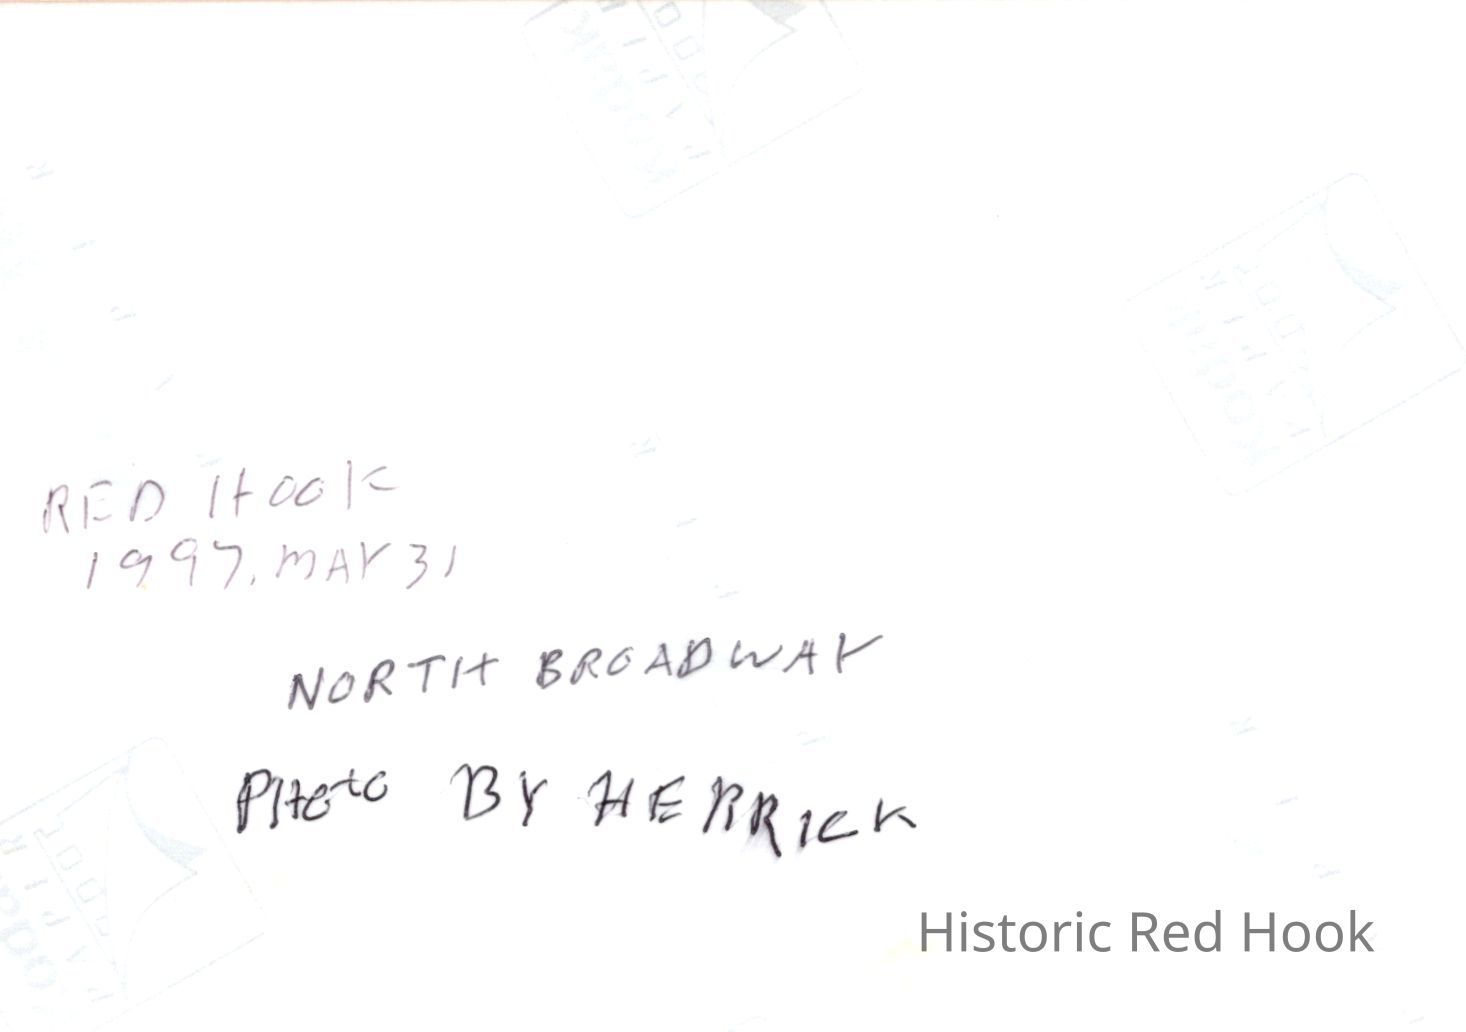 RED HOOK
1997. MAY 31
NORTH BROADWAY
Photo BY HERRICK
Historic Red Hook